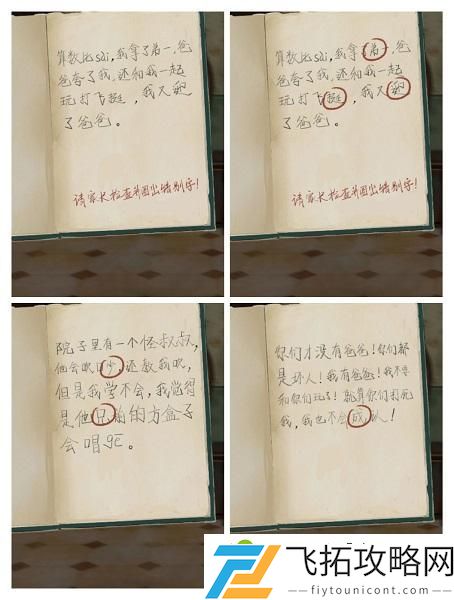 算数比sài,我拿了弟一,爸
爸夸了我,还和我一起
玩打飞挺,我又
了爸爸。
请家长检查并圈出错别字!
算数比sài,我拿了弟一,爸
爸夸了我,还和我一起
玩打飞挺,我又
了爸爸。
请家长检查并圈出错别字!
院子里有一个怪叔叔,
他会吹口,还教我吹,
但是我学不会,我觉得
是他兄前的方盒子
会唱gē。
你们才没有爸爸!你们都
是坏人!我有爸爸!我不要
和你们玩了!就算你们打死
我,我也不会成认!
飞拓攻略网
flytounicont.com